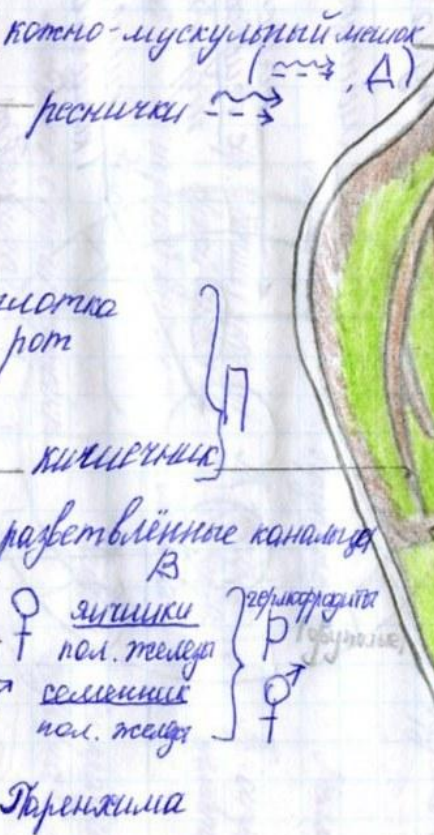 кожно-мускульный мешок
( , Д)
реснички
глотка
рот
П
кишечник
разветвлённые канальцы
В
♀ яичники
пол. железы
семенник
пол. желда
} гермофродиты
Р (двуполые)
⚥
Паренхима